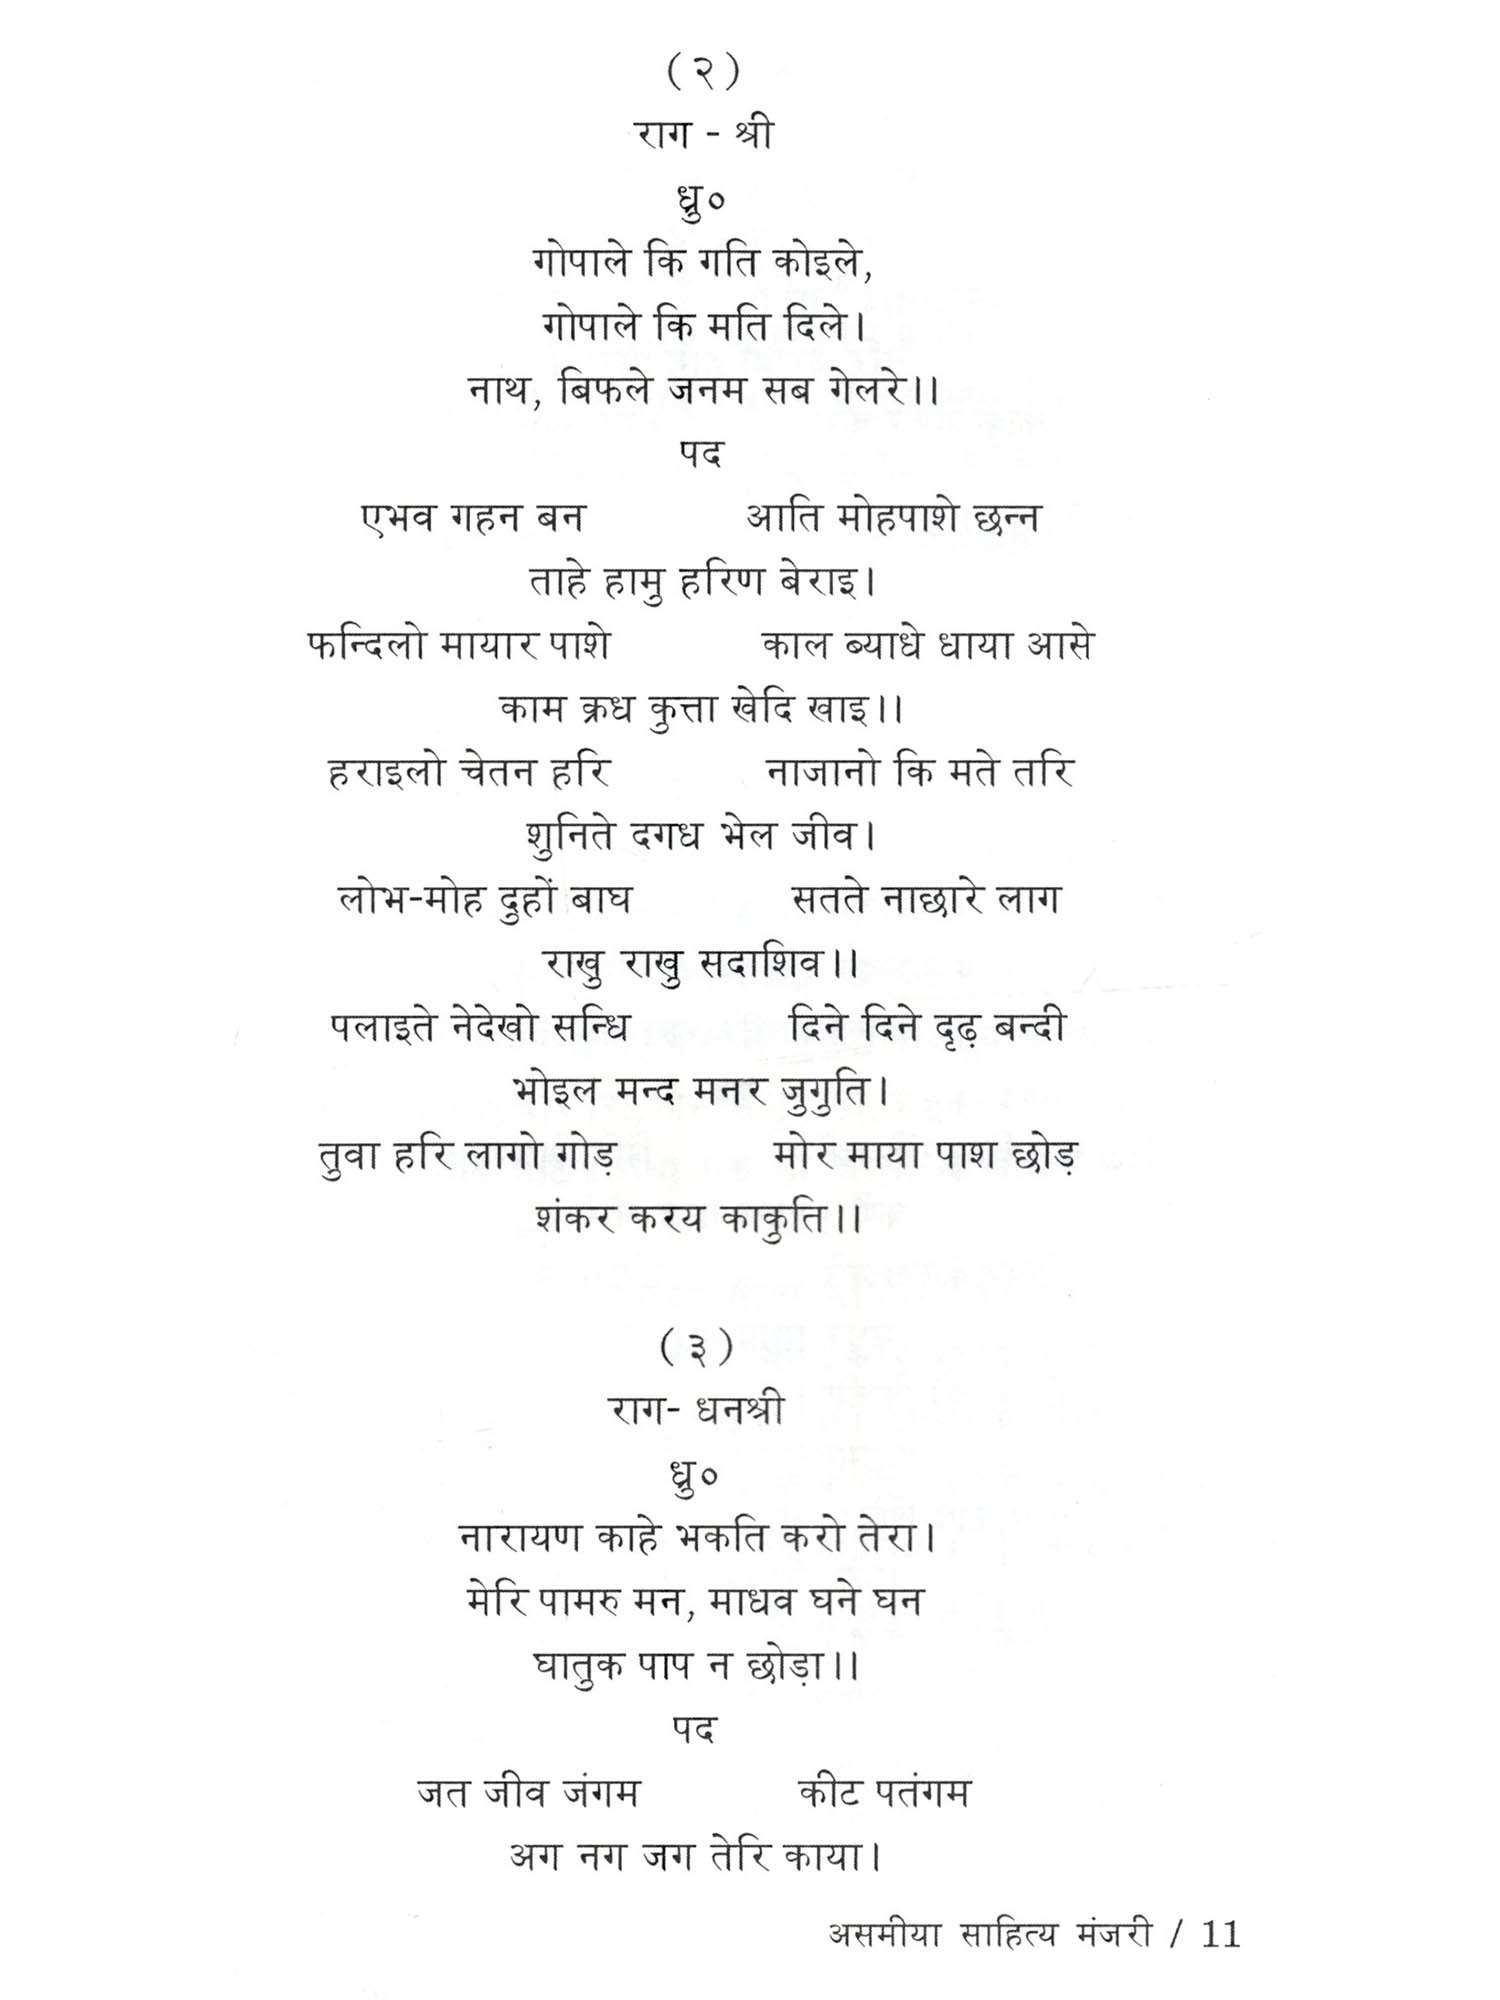 (२)
राग - श्री
ध्रु०
गोपाले कि गति कोइले,
गोपाले कि मति दिले।
नाथ, बिफले जनम सब गेलरे।।
पद
एभव गहन बन आति मोहपाशे छन्न
ताहे हामु हरिण बेराइ।
फन्दिलो मायार पाशे काल ब्याधे धाया आसे
काम क्रध कुत्ता खेदि खाइ।।
हराइलो चेतन हरि नाजानो कि मते तरि
शुनिते दगध भेल जीव।
लोभ-मोह दुहों बाघ सतते नाछारे लाग
राखु राखु सदाशिव।।
पलाइते नेदेखो सन्धि दिने दिने दृढ़ बन्दी
भोइल मन्द मनर जुगुति।
तुवा हरि लागो गोड़ मोर माया पाश छोड़
शंकर करय काकुति।।
(३)
राग- धनश्री
ध्रु०
नारायण काहे भकति करो तेरा।
मेरि पामरु मन, माधव घने घन
घातुक पाप न छोड़ा।।
पद
जत जीव जंगम कीट पतंगम
अग नग जग तेरि काया।
असमीया साहित्य मंजरी / 11